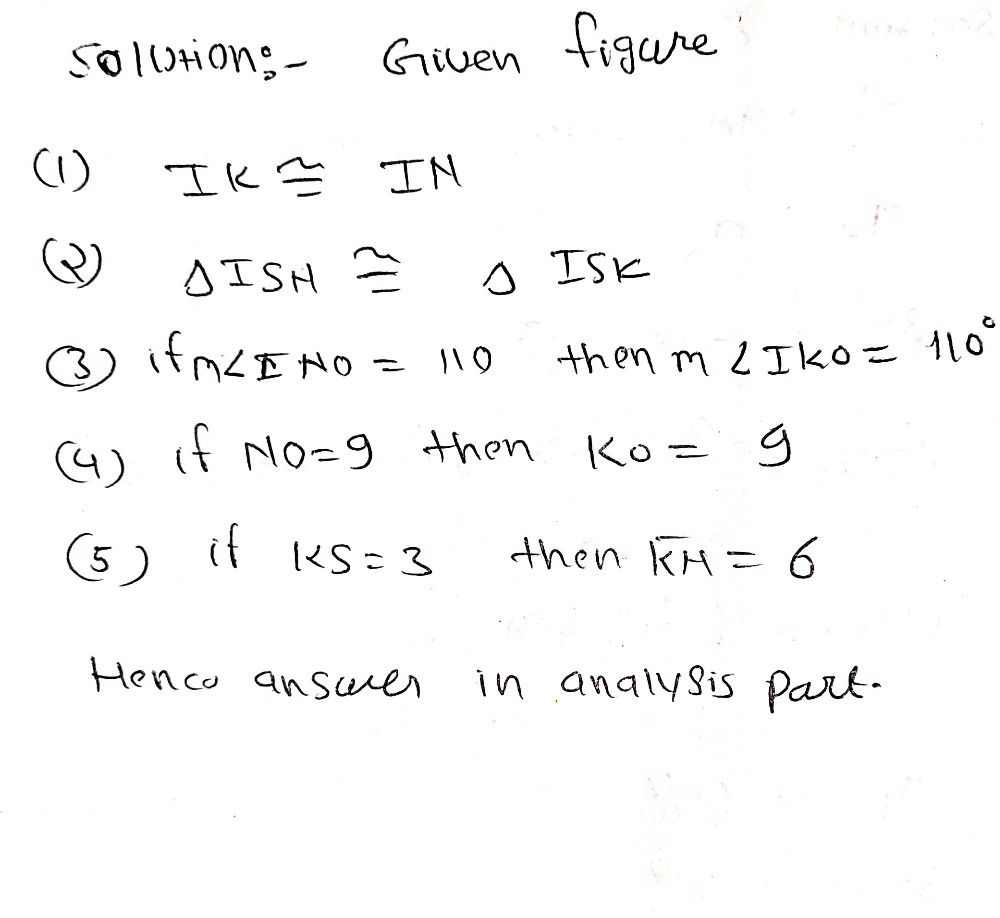 Solution:- Given figure
(1) IK ≅ IN
(2) ΔISN ≅ Δ ISK
(3) if m∠INO = 110 then m ∠IKO = 110°
(4) if NO=9 then KO = 9
(5) if KS=3 then KN = 6
Hence answer in analysis part.